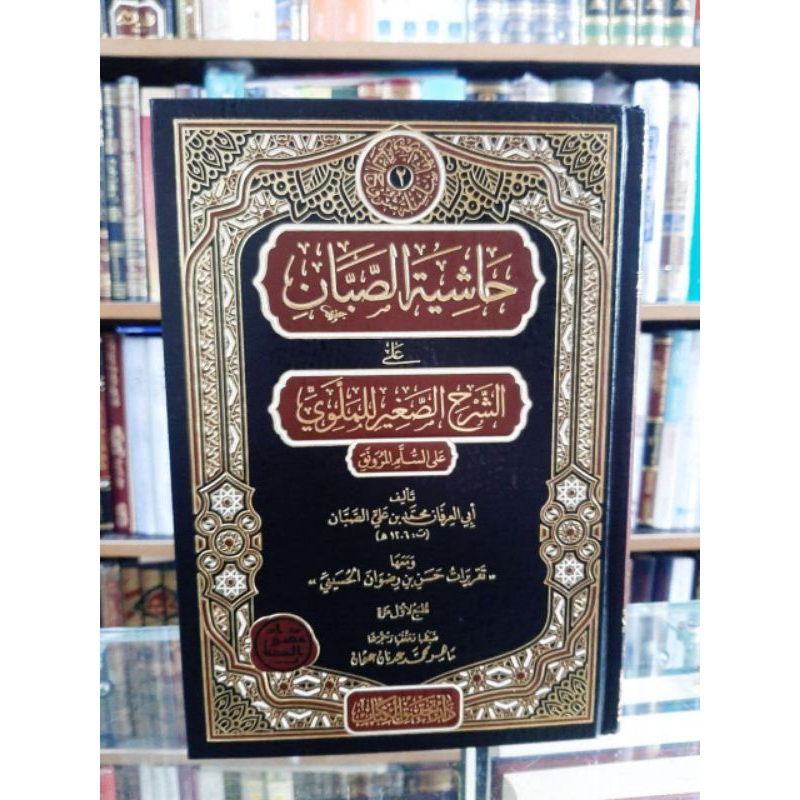 ٢
حَاشِيَة الصَّبَّان
عَلَى
الشَّرْح الصَّغِير لِلمَلَّوِيّ
عَلى السُّلَّم المُرَونَق
تأليف
أبي العرفان محمد بن علي الصَّبَّان
(ت: ١٢٠٦ هـ)
وَمَعَهَا
« تقريرات حسن بن رضوان الحسيني »
تطبع لأول مرة
ماهر محمد عدنان عثمان